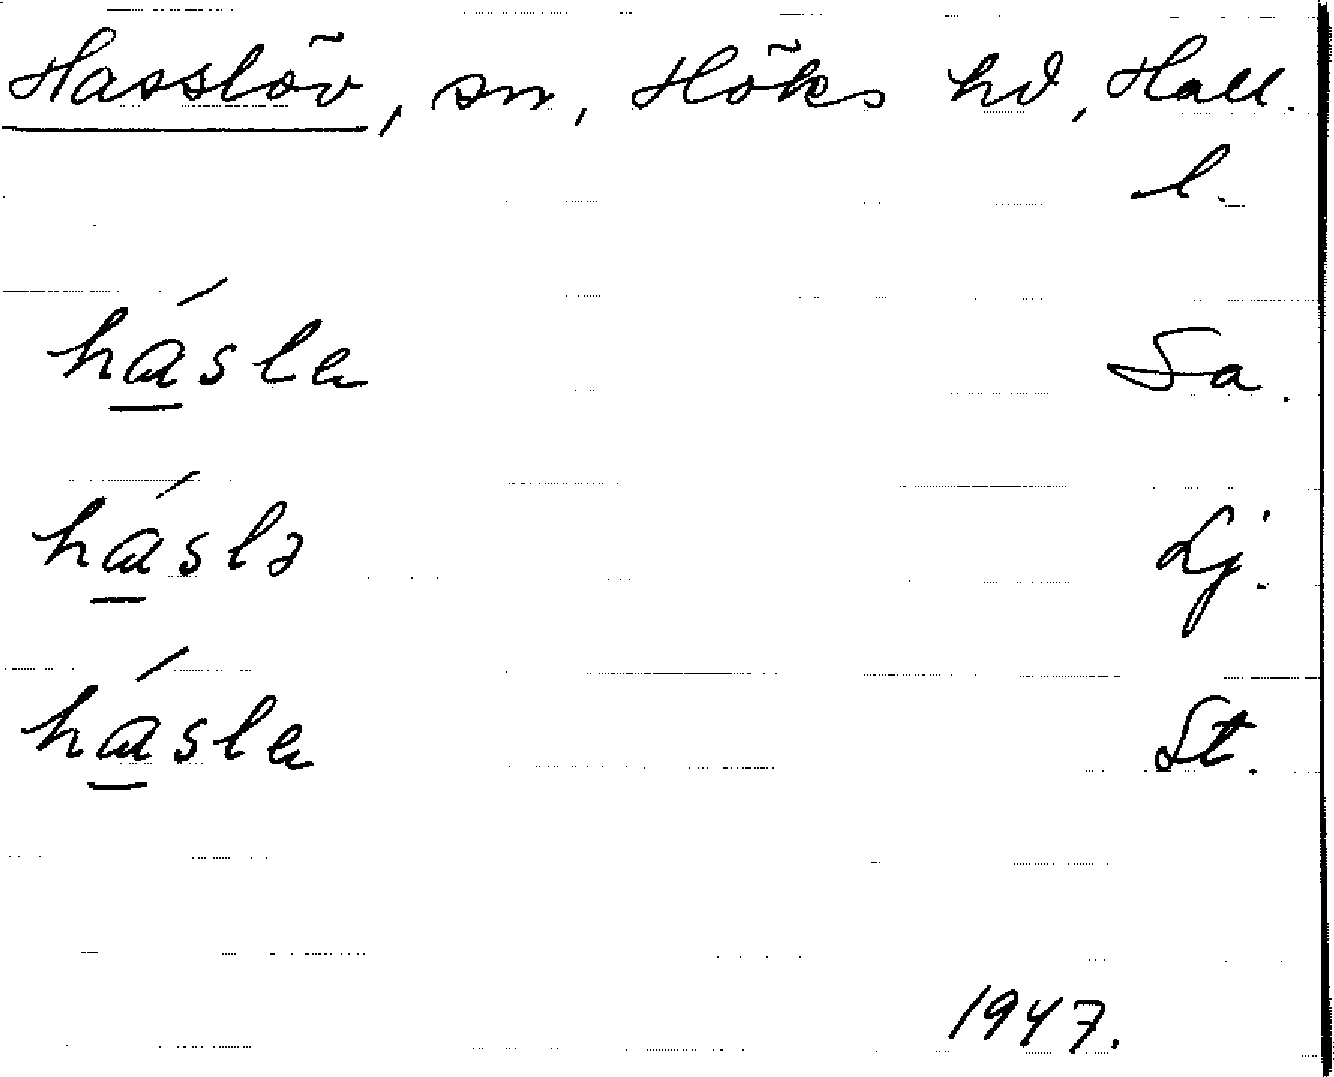 Hasslöv, sn, Höks hd, Hall.
l.
hásle Sa.
háslə Lj.
hásle St.
1947.